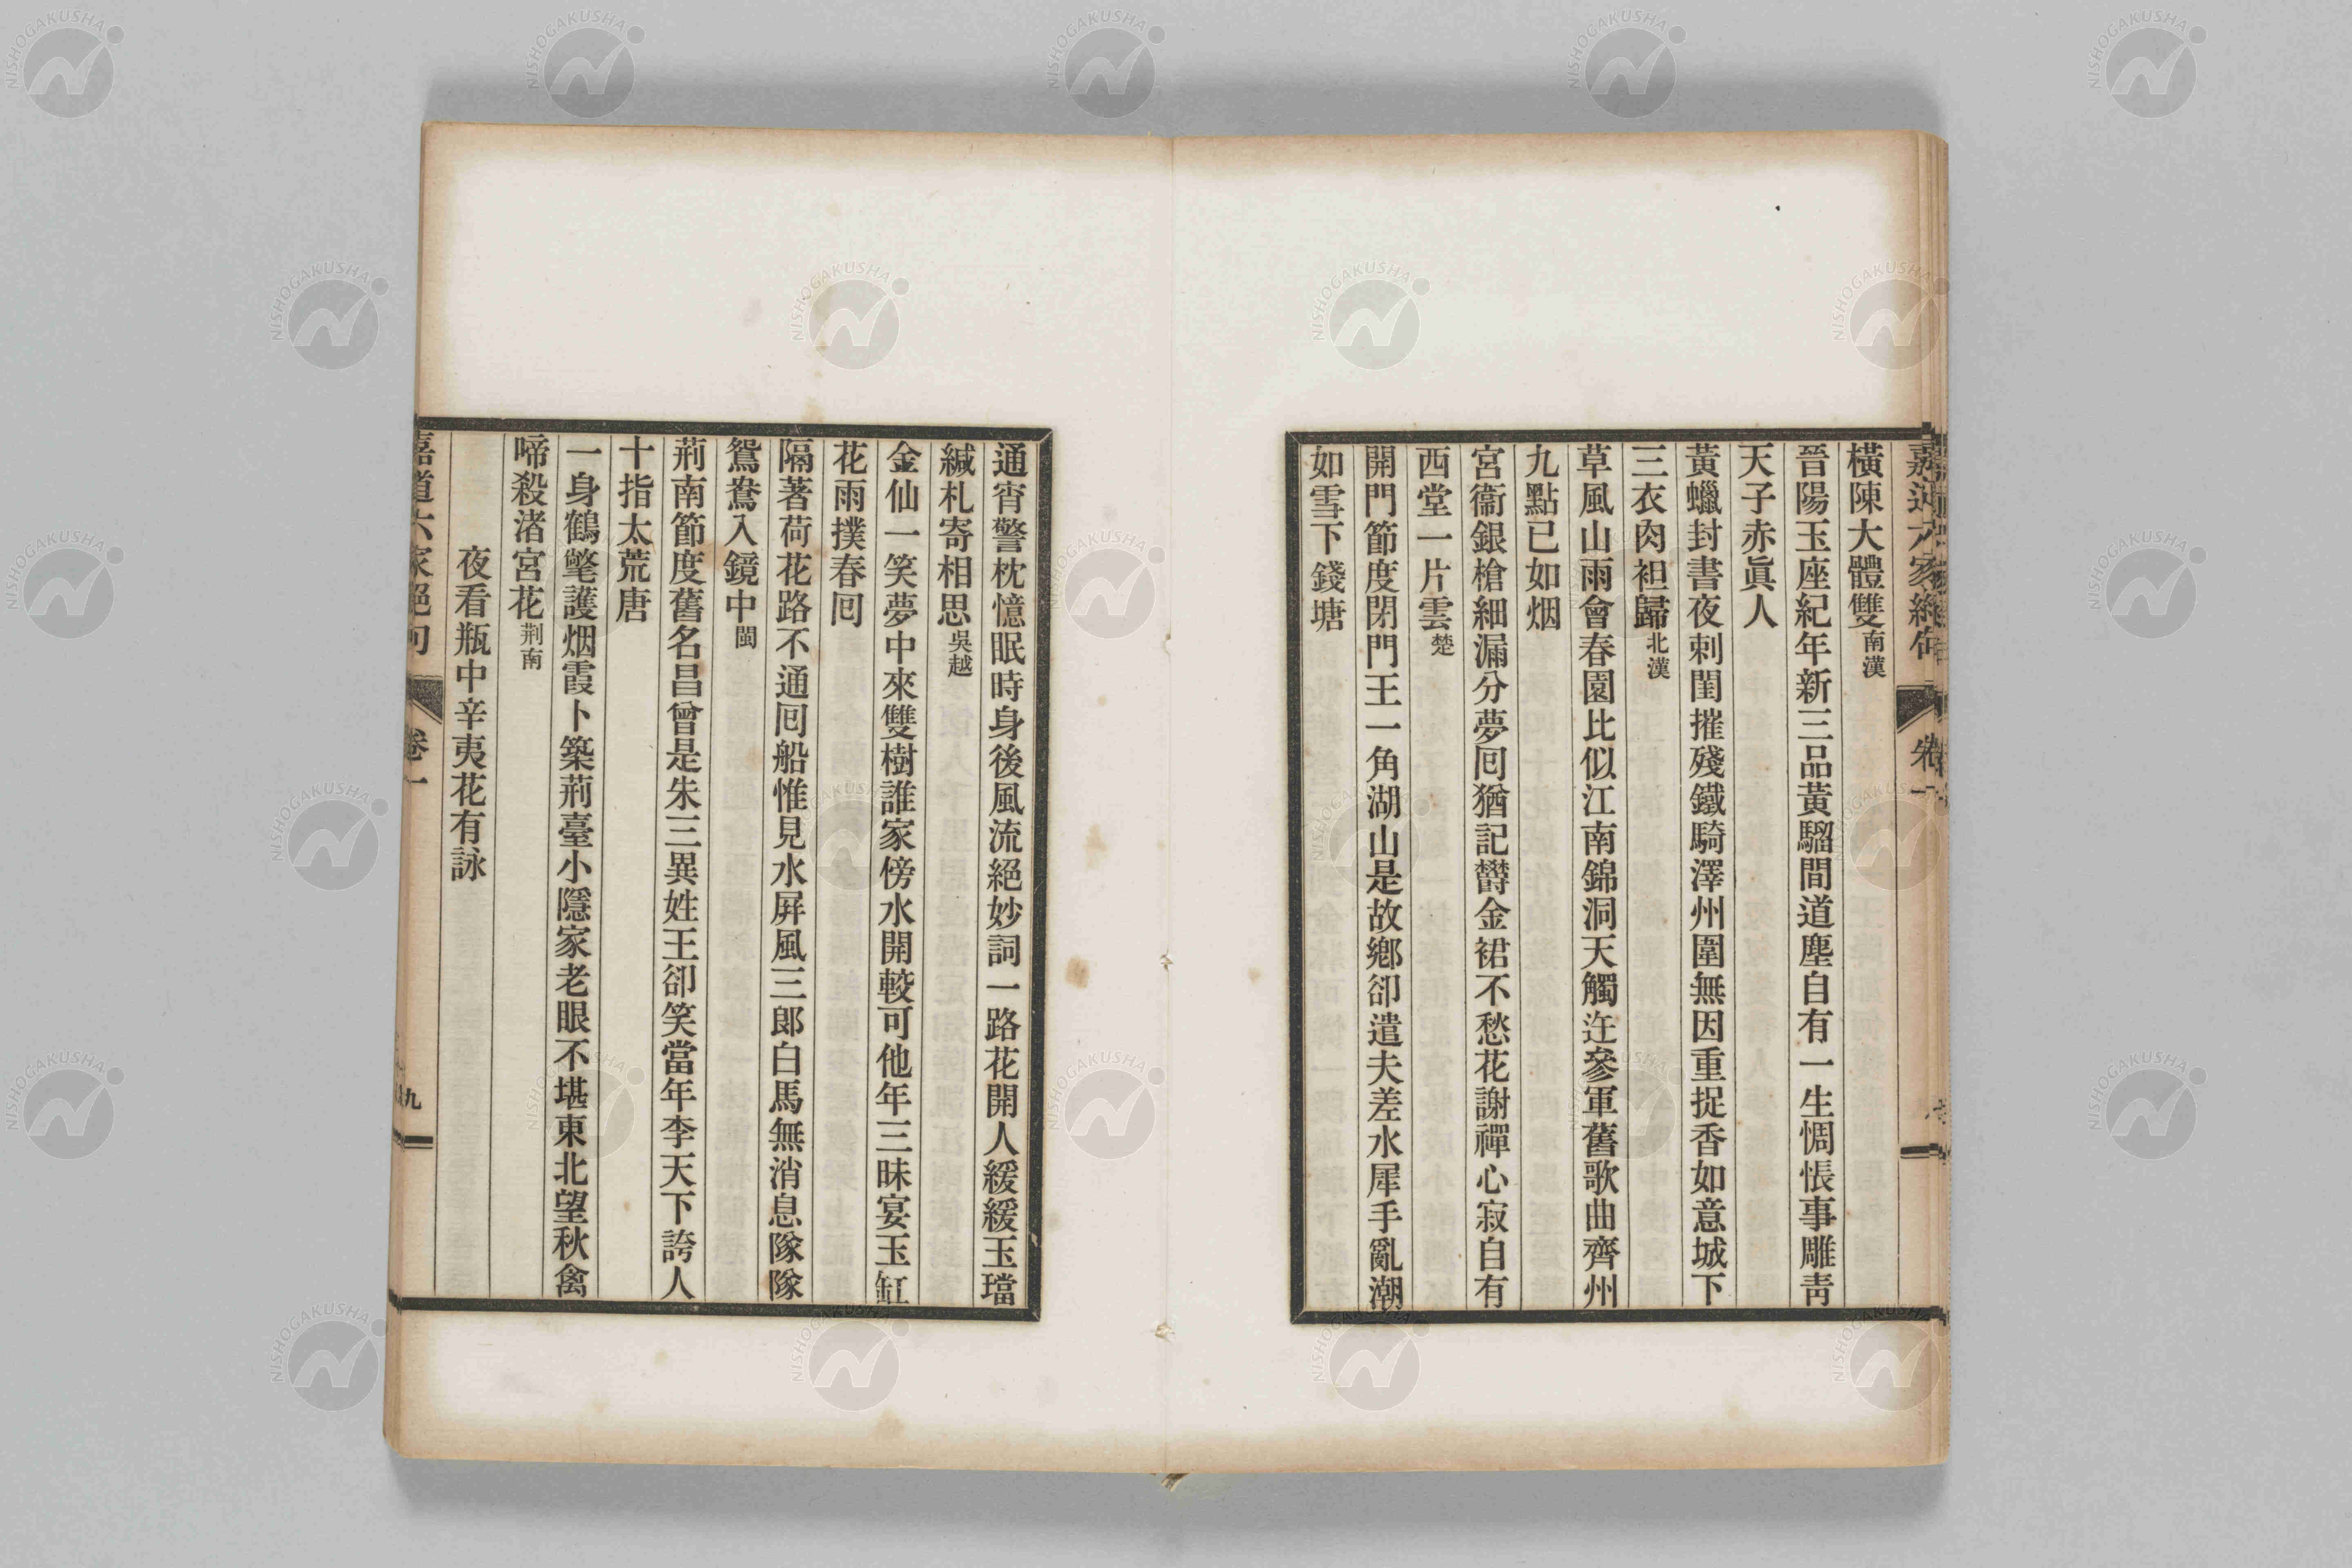 橫陳大體雙南漢
晉陽玉座紀年新三品黃騮間道塵自有一生惆悵事雕靑
天子赤眞人
黃蠟封書夜刺閨摧殘鐵騎澤州圍無因重捉香如意城下
三衣肉袒歸北漢
草風山雨會春園比似江南錦洞天觸迕參軍舊歌曲齊州
九點已如烟
宮衞銀槍細漏分夢囘猶記欝金裙不愁花謝禪心寂自有
西堂一片雲楚
開門節度閉門王一角湖山是故鄕卻遣夫差水犀手亂潮
如雪下錢塘
通宵警枕憶眠時身後風流絕妙詞一路花開人緩緩玉璫
緘札寄相思吳越
金仙一笑夢中來雙樹誰家傍水開較可他年三昧宴玉缸
花雨撲春囘
隔著荷花路不通囘船惟見水屛風三郞白馬無消息隊隊
鴛鴦入鏡中閩
荊南節度舊名昌曾是朱三異姓王卻笑當年李天下誇人
十指太荒唐
一身鶴氅護烟霞卜築荊臺小隱家老眼不堪東北望秋禽
啼殺渚宮花荆南
夜看瓶中辛夷花有詠
嘉道六家絕句
卷一
九
NISHOGAKUSHA